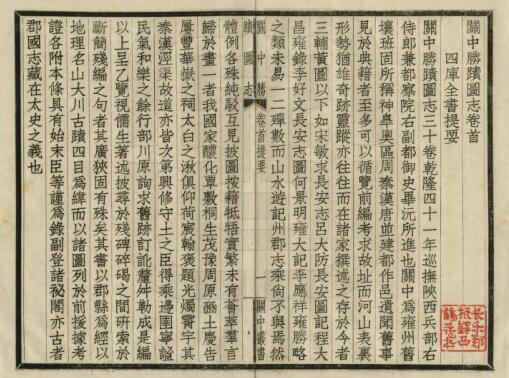 關中勝蹟圖志卷首
四庫全書提要
關中勝蹟圖志三十卷乾隆四十一年巡撫陝西兵部右
侍郎兼都察院右副都御史畢沅所進也關中爲雍州舊
壤班固所稱神臯奧區周秦漢唐並建都作邑遺聞舊事
見於典籍者至多可以循覽前編考求故址而河山表裏
形勢雄奇跡靈蹤亦往往而在諸家撰述之存於今者
三輔黃圖以下如宋敏求長安志呂大防長安圖記程大
昌雍錄李好文長安志圖何景明雍大記李應祥雍勝略
之類未易一二殫數而山水遊記州郡志乘尚不與焉然
關中勝蹟圖志
卷首提要
一
關中叢書
體例各殊純駁互見披圖按籍牴牾實繁未有薈萃羣言
歸於畫一者我國家醲化覃敷桐生茂豫周原膴土慶告
屢豐華嶽之祠太白之湫俱仰荷宸翰褒題光燭霄宇其
秦漢涇渠故道亦皆次第興修守土之臣得乘邊圉寧謐
民氣和樂之餘行部川原詢求舊跡訂訛釐舛勒成是編
以上呈乙覽視儒生著述披尋於殘碑碎碣之間研索於
斷簡殘編之句者其廣狹固有殊矣其書以郡縣爲經以
地理名山大川古蹟四目爲緯而以諸圖列於前援據考
證各附本條具有始末臣等謹爲錄副登諸祕閣亦古者
郡國志藏在太史之義也